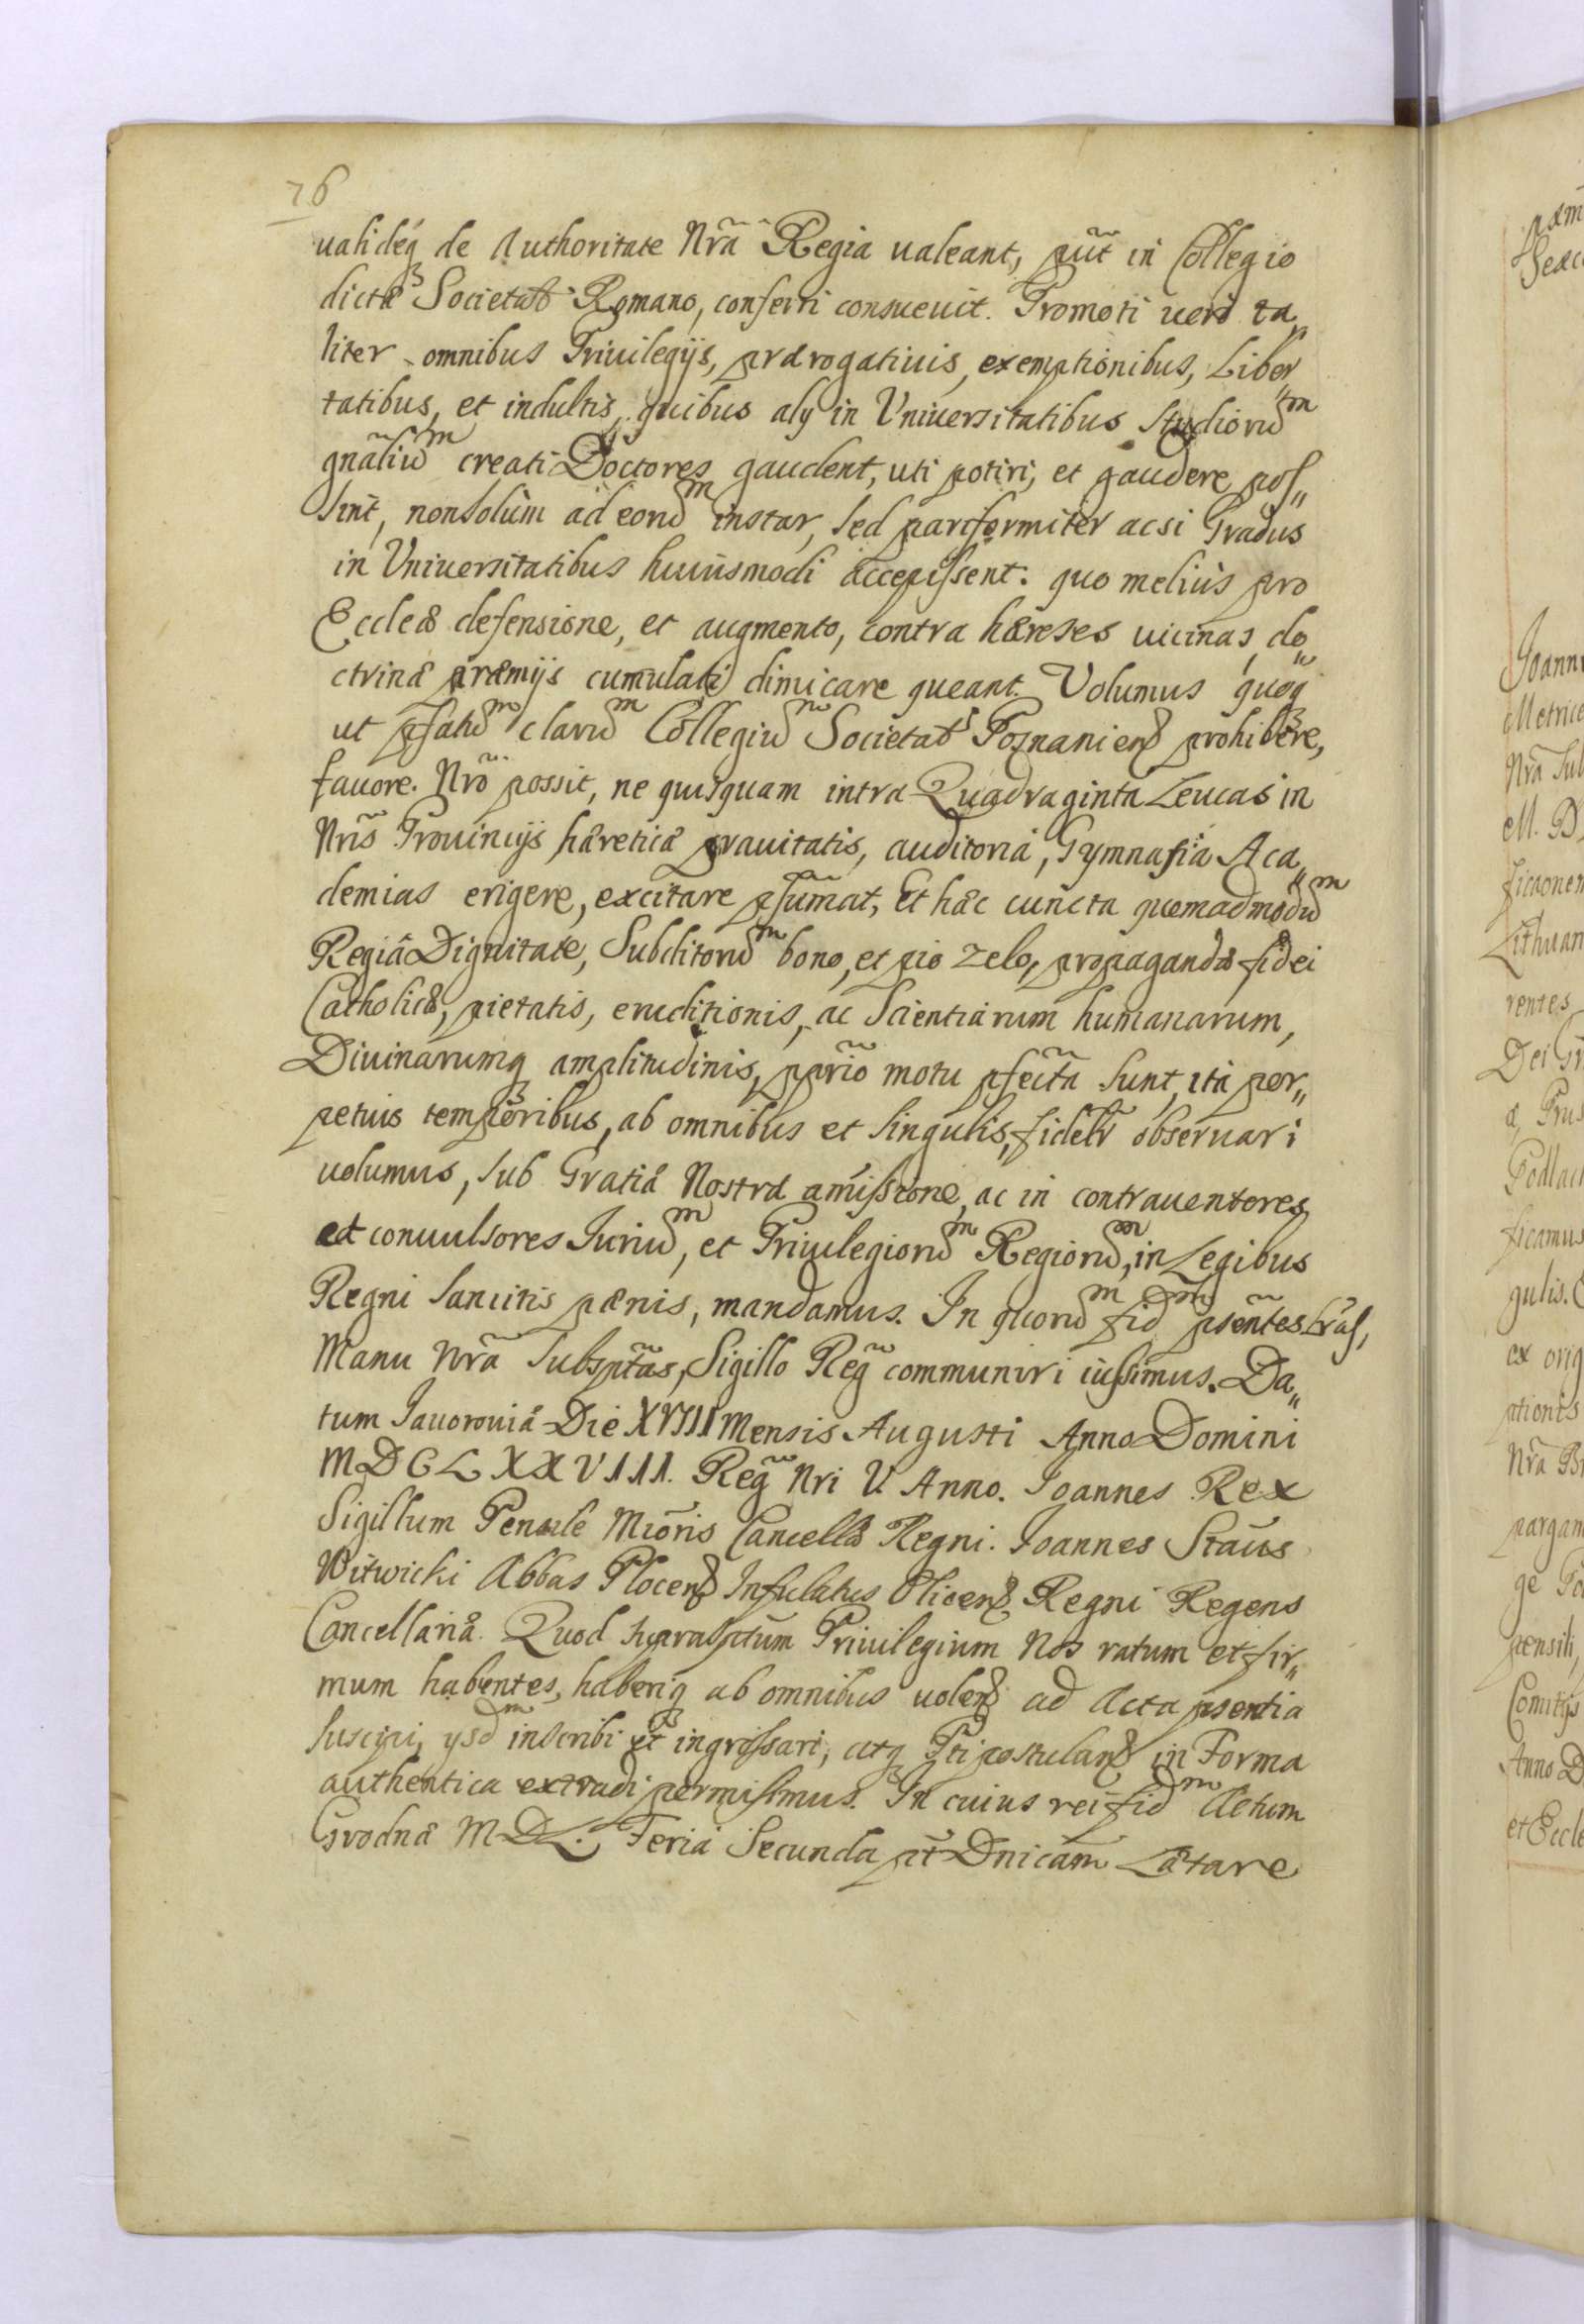 76
ualideq́ de Authoritate Nrã Regia ualeant, put̃ in Collegio
dictæ Societats Romano, conferri consueuit. Promoti uerò ta„
liter omnibus Priuilegijs, prærogatiuis, exemptionibus, Liber„
tatibus, et indultis, quibus alij in Vniuersitatibus Studioru͏̃m
gnãliũm creati Doctores gaudent, uti potiri, et gaudere pos„
sint, nonsolùm ad eorũm instar, sed pariformiter acsi Gradus
in Vniuersitatibus huiusmodi accepissent. quo meliùs pro
Eccleæ defensione, et augmento, contra hæreses uicinas, do„
ctrinæ præmijs cumulati dimicare queant. Volumus quoq
ut pfatũm clarũm Collegiũm Societats Posnaniens prohibere,
fauore Nrõ possit, ne quisquam intra Quadraginta Leucas in
Nris̃ Prouincijs hæreticæ prauitatis, auditoria, Gymnasia Aca„
demias erigere, excitare psũmat, Et hæc cuncta quemadmodũm
Regiâ Dignitate, Subditorũm bono, et pio zelo, propagandæ fidei
Catholicæ, pietatis, eruditionis, ac Scientiarum humanarum,
Diuinarumq amplitudinis, pprĩo motu pfectã sunt, ità per„
petuis temporibus, ab omnibus et singulis, fidelr̃ obseruari
uolumus, sub Gratiæ Nostræ amissione, ac in contrauentores
et conuulsores Juriũm, et Priuilegiorũm Regiorũm, in Legibus
Regni sancitis pænis, mandamus. In quorũm fidm psẽntes Lrãs,
Manu Nrã Subsptãs, Sigillo Reg̃ communiri iussimus. Da„
tum Jauorouiæ Die XVIII Mensis Augusti Anno Domini
MDCLXXVIII. Reg̃ Nri V. Anno. Joannes Rex
Sigillum Pensile Miõris Cancellæ Regni. Joannes Staũs
Witwicki Abbas Plocens Infulatus Olicens Regni Regens
Cancellariæ. Quod suprasptum Priuilegium Nos ratum et fir„
mum habentes, haberiq ab omnibus uolens ad Acta psentia
suscipi, ijsdm inscribi et ingrossari, atq Pti postulans in Forma
authentica extradi permisimus. In cuius rei fidm Actum
Grodnæ M. D. L. Feria Secunda pt̃ Dnicam̃ Lætare